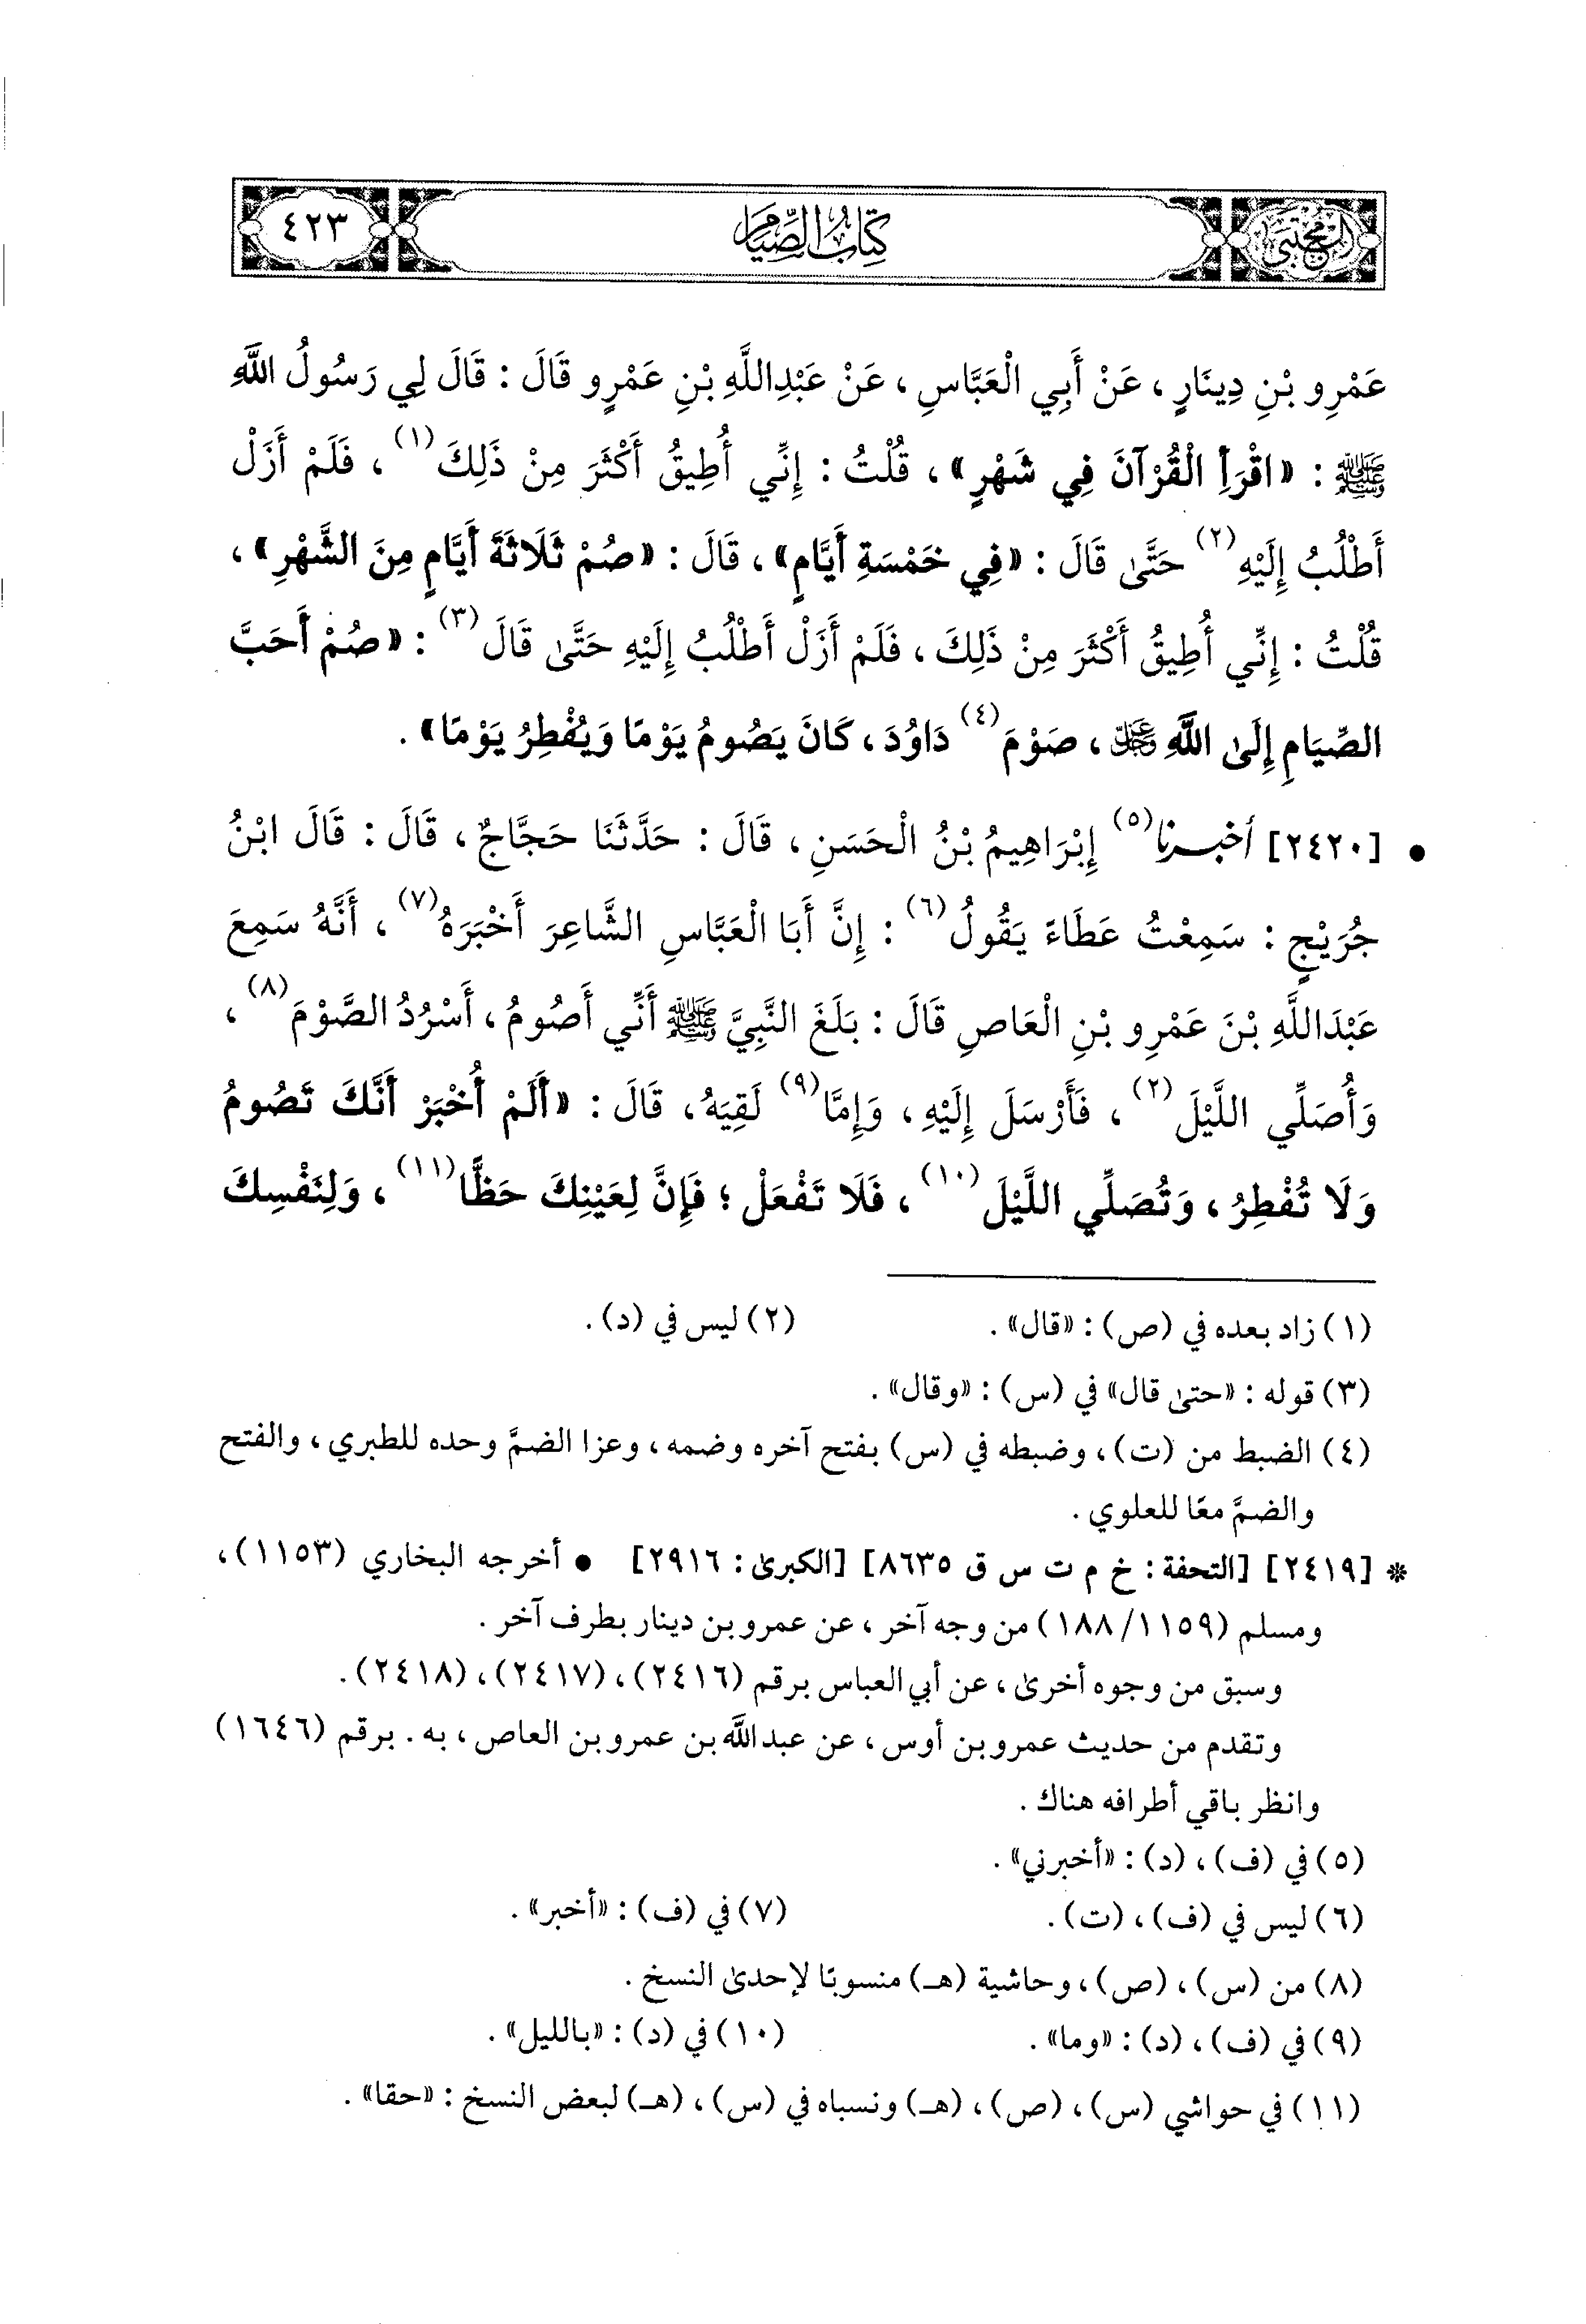 المجتبى
كتاب الصيام
٤٢٣
عَمْرِو بْنِ دِينَارٍ ، عَنْ أَبِي الْعَبَّاسِ ، عَنْ عَبْدِاللَّهِ بْنِ عَمْرٍو قَالَ : قَالَ لِي رَسُولُ اللَّهِ
ﷺ : «اقْرَأِ الْقُرْآنَ فِي شَهْرٍ» ، قُلْتُ : إِنِّي أُطِيقُ أَكْثَرَ مِنْ ذَلِكَ(١) ، فَلَمْ أَزَلْ
أَطْلُبُ إِلَيْهِ(٢) حَتَّىٰ قَالَ : «فِي خَمْسَةِ أَيَّامٍ» ، قَالَ : «صُمْ ثَلَاثَةَ أَيَّامٍ مِنَ الشَّهْرِ» ،
قُلْتُ : إِنِّي أُطِيقُ أَكْثَرَ مِنْ ذَلِكَ ، فَلَمْ أَزَلْ أَطْلُبُ إِلَيْهِ حَتَّىٰ قَالَ(٣) : «صُمْ أَحَبَّ
الصِّيَامِ إِلَىٰ اللَّهِ ﷿ ، صَوْمَ(٤) دَاوُدَ ، كَانَ يَصُومُ يَوْمًا وَيُفْطِرُ يَوْمًا» .
• [٢٤٢٠] أخبرنا(٥) إِبْرَاهِيمُ بْنُ الْحَسَنِ ، قَالَ : حَدَّثَنَا حَجَّاجٌ ، قَالَ : قَالَ ابْنُ
جُرَيْجٍ : سَمِعْتُ عَطَاءً يَقُولُ(٦) : إِنَّ أَبَا الْعَبَّاسِ الشَّاعِرَ أَخْبَرَهُ(٧) ، أَنَّهُ سَمِعَ
عَبْدَاللَّهِ بْنَ عَمْرِو بْنِ الْعَاصِ قَالَ : بَلَغَ النَّبِيَّ ﷺ أَنِّي أَصُومُ ، أَسْرُدُ الصَّوْمَ(٨) ،
وَأُصَلِّي اللَّيْلَ(٢) ، فَأَرْسَلَ إِلَيْهِ ، وَإِمَّا(٩) لَقِيَهُ ، قَالَ : «أَلَمْ أُخْبَرْ أَنَّكَ تَصُومُ
وَلَا تُفْطِرُ ، وَتُصَلِّي اللَّيْلَ(١٠) ، فَلَا تَفْعَلْ ؛ فَإِنَّ لِعَيْنِكَ حَظًّا(١١) ، وَلِنَفْسِكَ
(١) زاد بعده في (ص) : «قال» .
(٢) ليس في (د) .
(٣) قوله : «حتىٰ قال» في (س) : «وقال» .
(٤) الضبط من (ت) ، وضبطه في (س) بفتح آخره وضمه ، وعزا الضمَّ وحده للطبري ، والفتح
والضمَّ معًا للعلوي .
* [٢٤١٩] [التحفة : خ م ت س ق ٨٦٣٥] [الكبرىٰ : ٢٩١٦] • أخرجه البخاري (١١٥٣) ،
ومسلم (١١٥٩/ ١٨٨) من وجه آخر ، عن عمرو بن دينار بطرف آخر .
وسبق من وجوه أخرىٰ ، عن أبي العباس برقم (٢٤١٦) ، (٢٤١٧) ، (٢٤١٨) .
وتقدم من حديث عمرو بن أوس ، عن عبد اللَّه بن عمرو بن العاص ، به . برقم (١٦٤٦)
وانظر باقي أطرافه هناك .
(٥) في (ف) ، (د) : «أخبرني» .
(٦) ليس في (ف) ، (ت) .
(٧) في (ف) : «أخبر» .
(٨) من (س) ، (ص) ، وحاشية (هـ) منسوبًا لإحدىٰ النسخ .
(٩) في (ف) ، (د) : «وما» .
(١٠) في (د) : «بالليل» .
(١١) في حواشي (س) ، (ص) ، (هـ) ونسباه في (س) ، (هـ) لبعض النسخ : «حقا» .